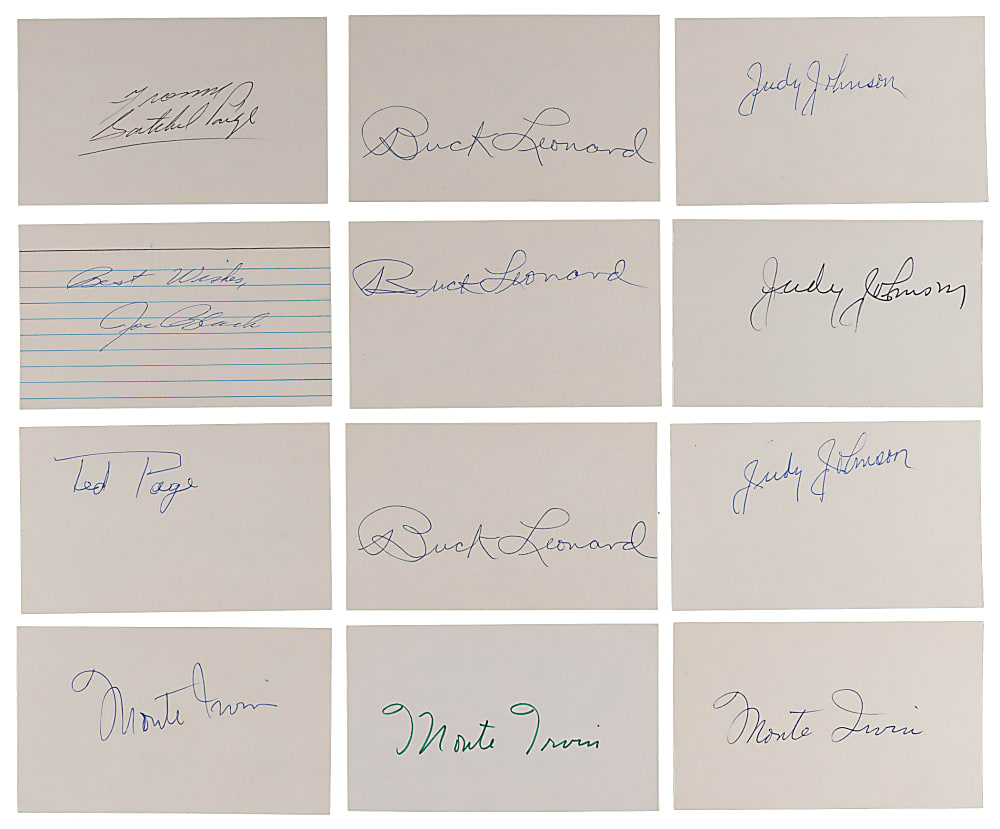 From
Satchel Paige
Buck Leonard
Judy Johnson
Best Wishes,
Joe Black
Buck Leonard
Judy Johnson
Ted Page
Buck Leonard
Judy Johnson
Monte Irvin
Monte Irvin
Monte Irvin